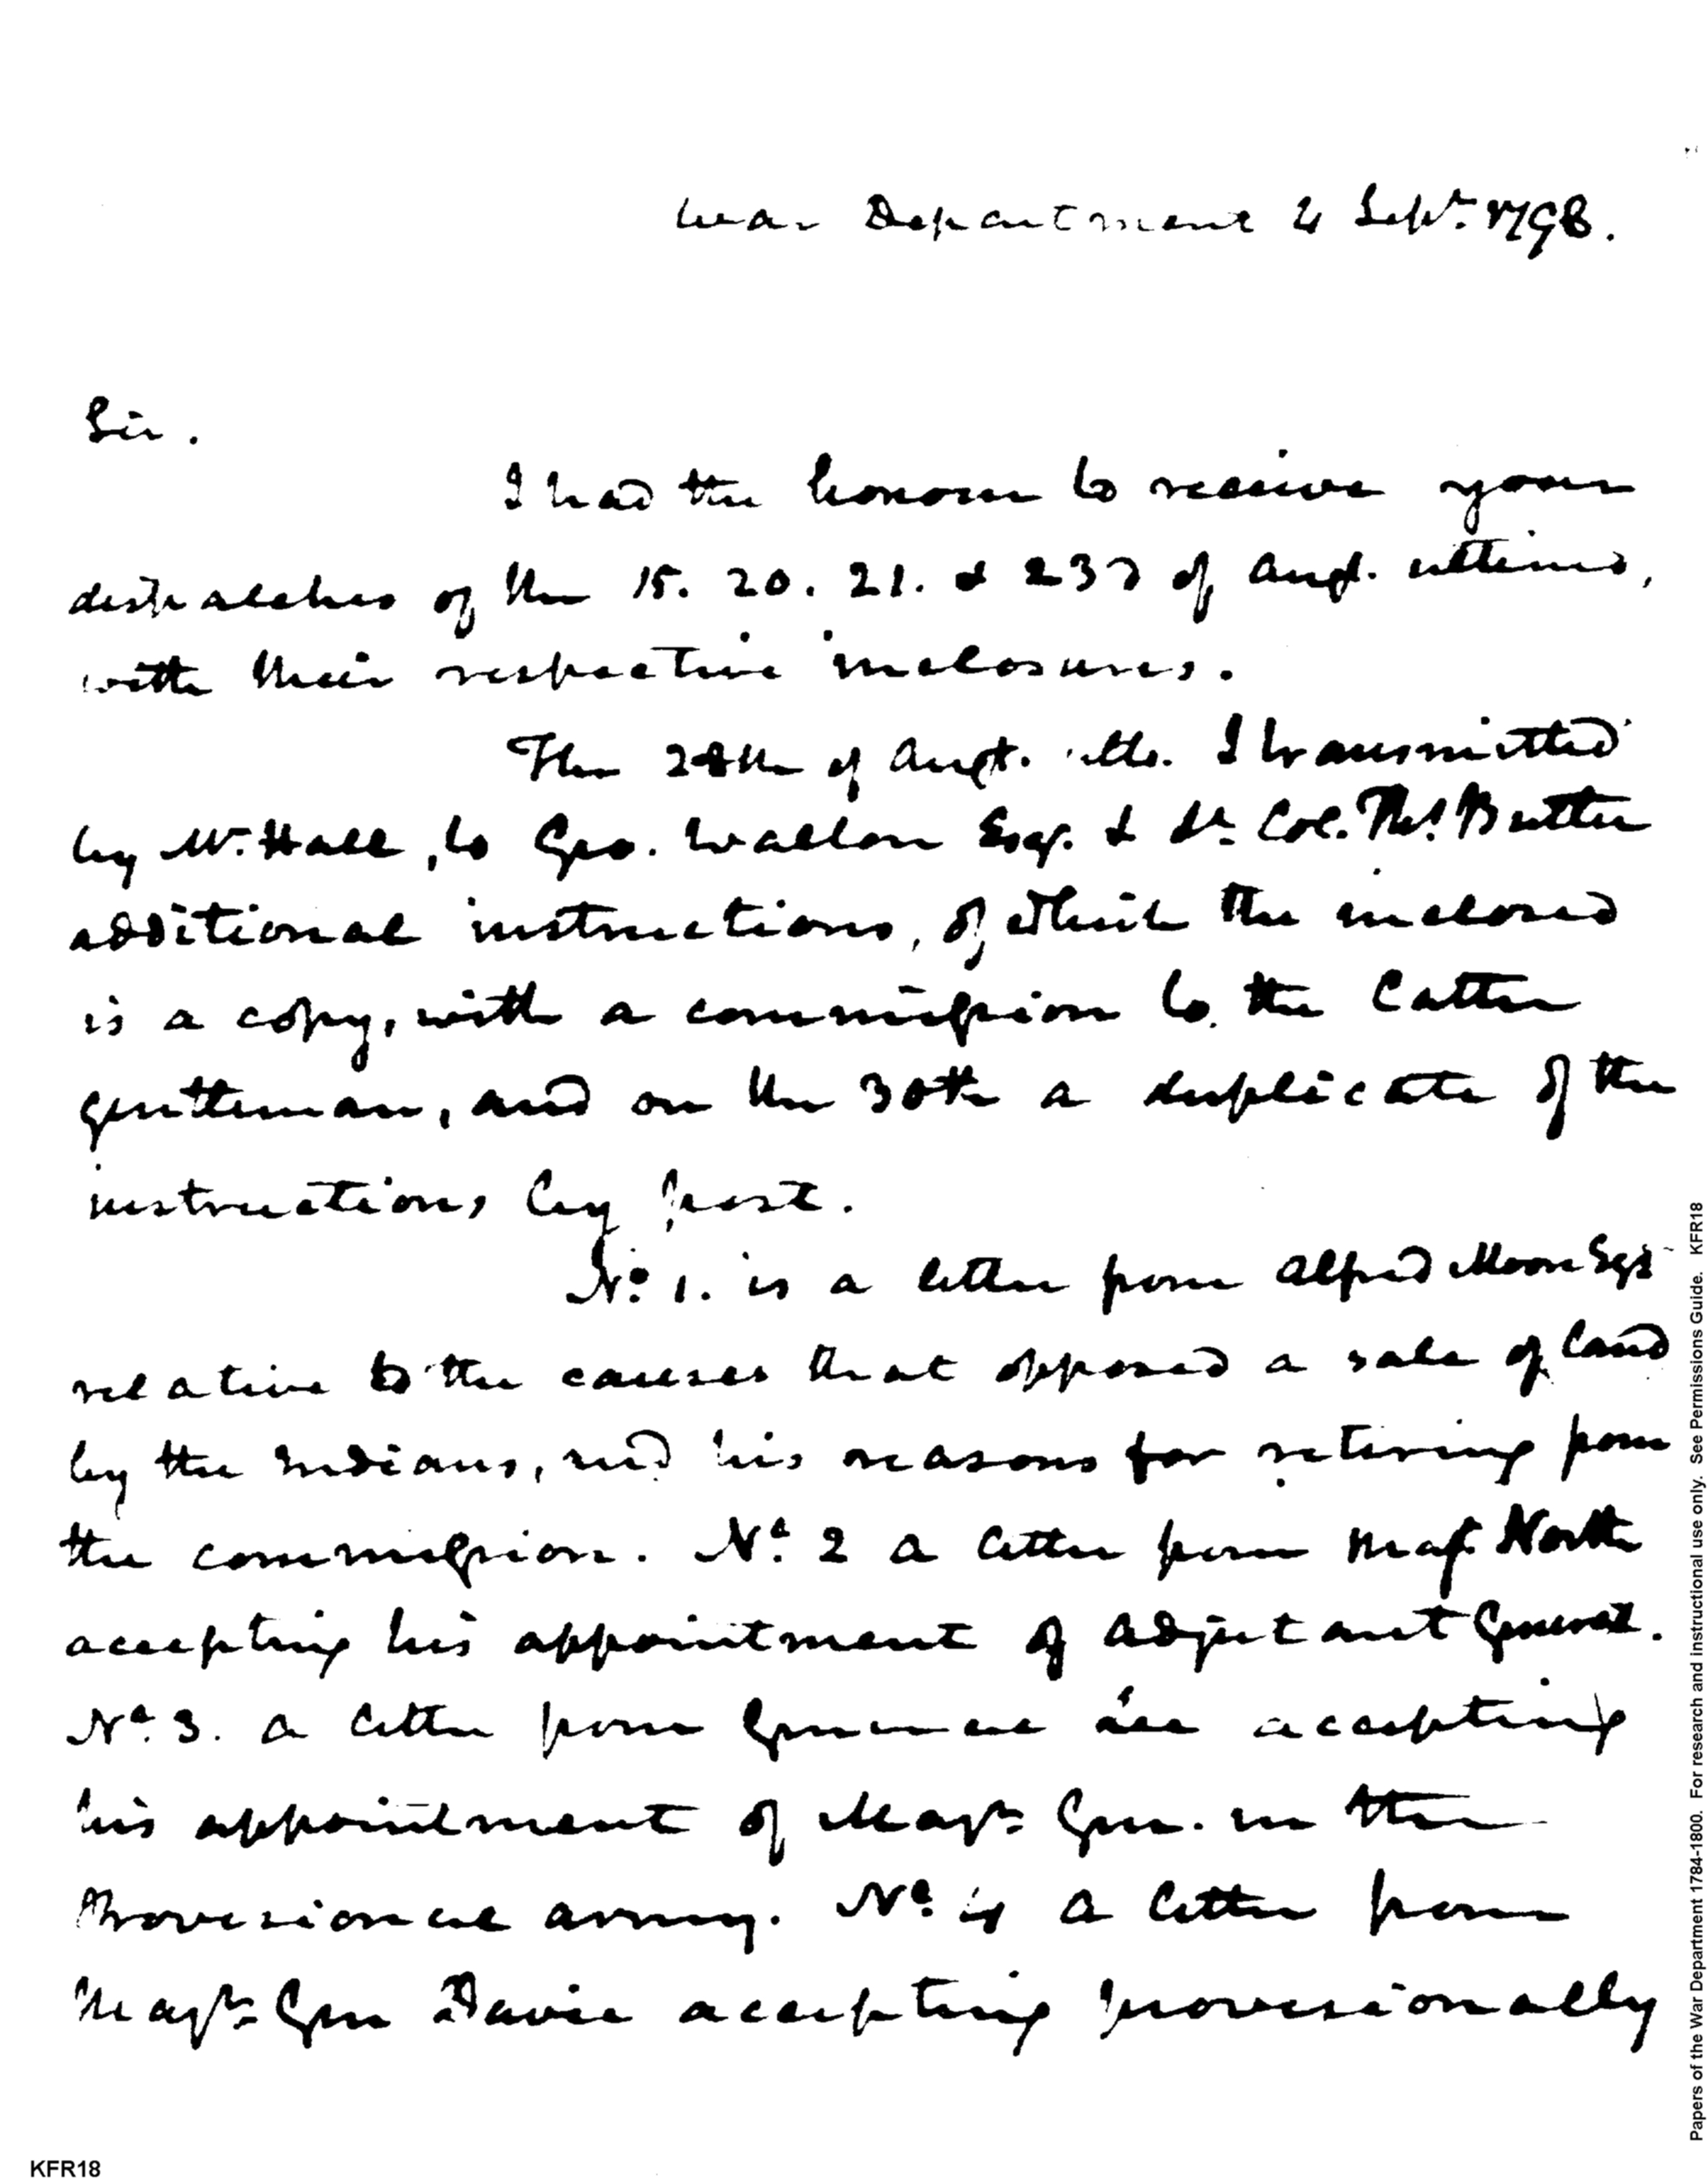 War Department 4 Sept. 1798.
Sir.
I had the honour to receive your
dispatches of the 15. 20. 21. & 23d of Augt. ultimo,
with their respective inclosures.
The 28th of Augt. ulto. I transmitted
by Mr. Hall, to Geo. Walton Esqr. & Lt. Col. Ths. Butler
additional instructions, of which the inclosed
is a copy, with a commission to the latter
gentleman, and on the 30th a duplicate of the
instructions by post.
No. 1. is a letter from Alfred Moore Esqr
relative to the causes that opposed a sale of land
by the Indians, and his reasons for retiring from
the commission. No. 2 a letter from Maj. North
accepting his appointment of Adjutant General.
No. 3. a letter from General Lee accepting
his appointment of Majr. Gen. in the
Provisional army. No. 4 a letter from
Majr. Gen Davie accepting provisionally
Papers of the War Department 1784-1800. For research and instructional use only. See Permissions Guide. KFR18
KFR18